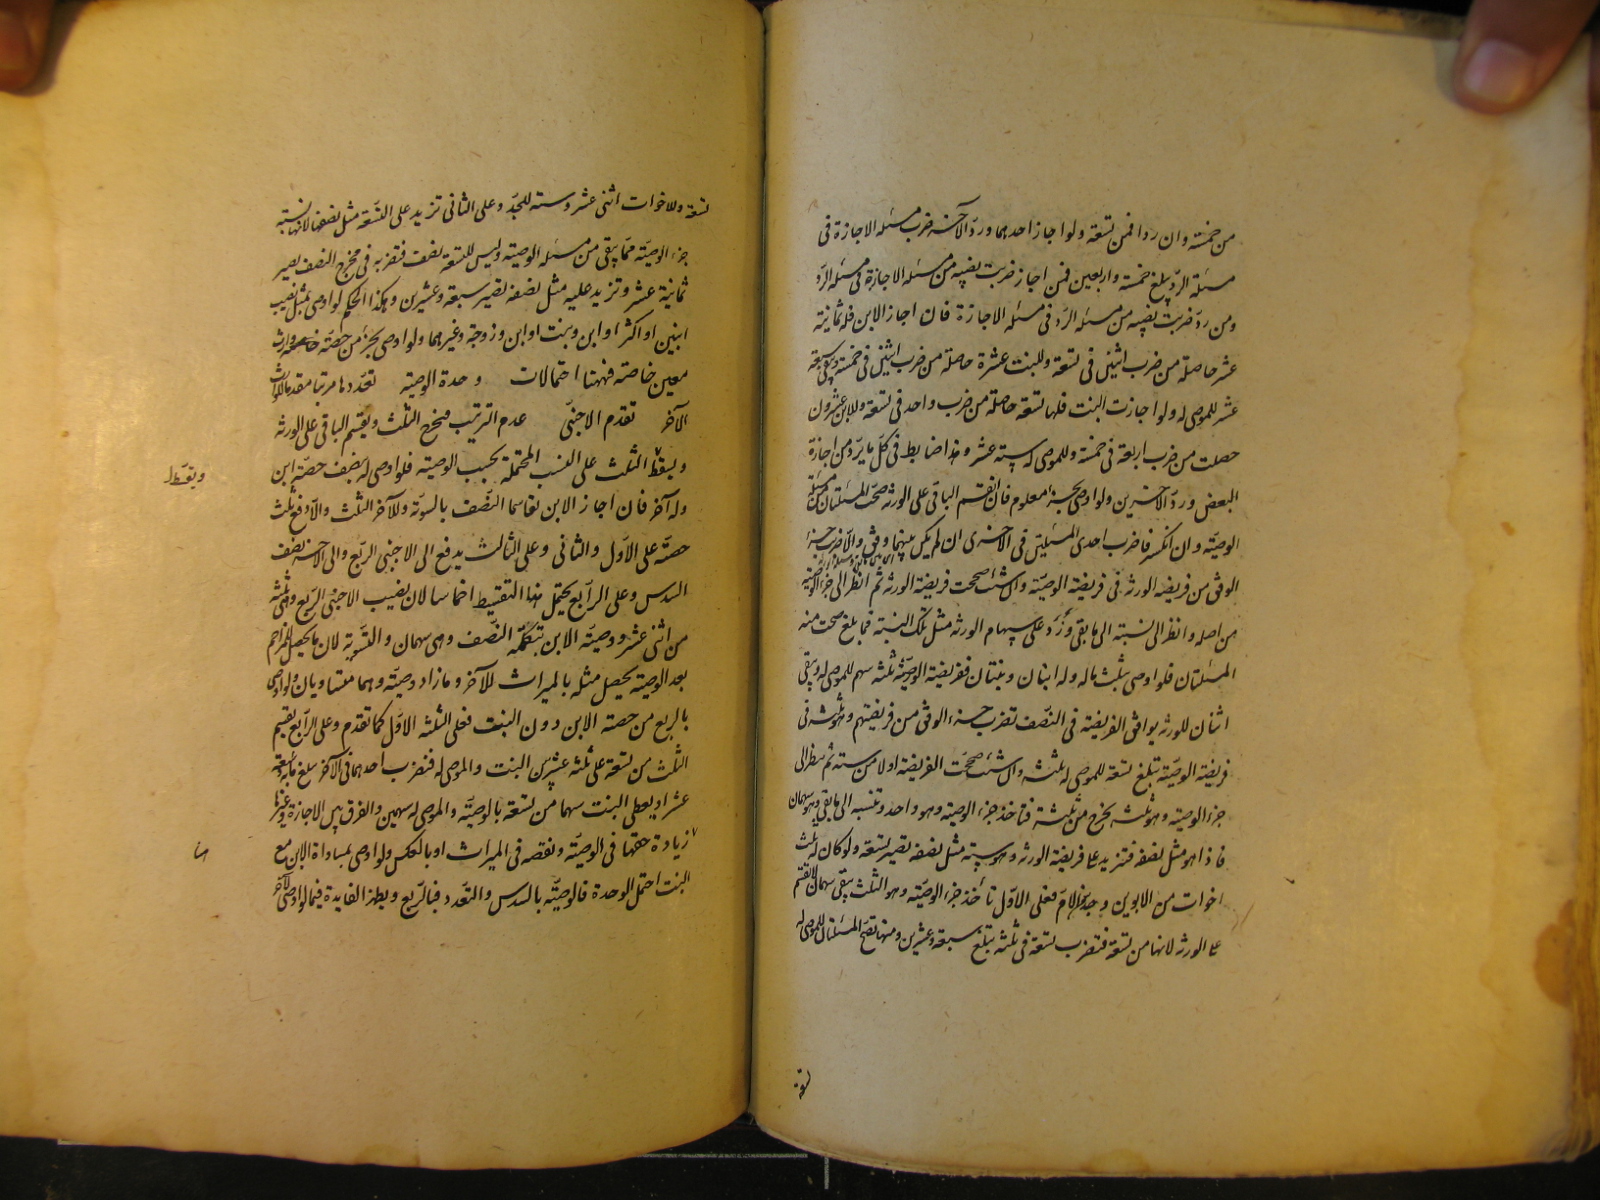 من خمسة وان ردا فمن تسعة ولو اجاز احدهما ورد الآخر ضرب مسئلة الاجازة فى
مسئلة الرد يبلغ خمسة واربعين فمن اجاز ضربت نصيبه من مسئلة الاجازة فى مسئلة الرد
ومن رد ضربت نصيبه من مسئلة الرد فى مسئلة الاجازة فان اجاز الابن فله ثمانية
عشر حاصلة من ضرب اثنين فى تسعة وللبنت عشرة حاصلة من ضرب اثنين فى خمسة ويبقى سبعة
عشر للموصى له ولو اجازت البنت فلها تسعة حاصلة من ضرب واحد فى تسعة وللابن عشرون
حصلت من ضرب اربعة فى خمسة وللموصى له ستة عشر وهذا ضابط فى كل ما يرد من اجازة
البعض ورد الآخرين ولو اوصى بجزء معلوم فان انقسم الباقى على الورثة صحت المسئلتان من مسئلة
الوصية وان انكسر فاضرب احدى المسئلتين فى الاخرى ان لم يكن بينهما وفق والا فاضرب جزء
الوفق من فريضة الورثة فى فريضة الوصية وان شئت صححت فريضة الورثة ثم انظر الى جزء الوصية
من اصله وانظر الى نسبته الى ما بقى وزد على سهام الورثة مثل تلك النسبة فما بلغ صحت منه
المسئلتان فلو اوصى بثلث ماله وله ابنان وبنتان ففريضة الوصية ثلثة سهم للموصى له ويبقى
اثنان للورثة يوافق الفريضة فى النصف تضرب جزء الوفق من فريضتهم وهو ثلثة فى
فريضة الوصية تبلغ تسعة للموصى له ثلثة وان شئت صححت الفريضة اولا من ستة ثم ينظر الى
جزء الوصية وهو ثلثه يخرج من ثلثة فتاخذ جزء الوصية وهو واحد وتنسبه الى ما بقى وهو سهمان
فاذا هو مثل نصفه فتزيد على فريضة الورثة وهو ستة مثل نصفه تصير تسعة ولو كان له ثلث
اخوات من الابوين وجد الام فعلى الاول تاخذ جزء الوصية وهو الثلث يبقى سهمان لا تنقسم
على الورثة لانها من تسعة فتضرب تسعة فى ثلثة يبلغ سبعة وعشرين ومنها تصح المسئلتان للموصى له
تسعة
تسعة وللاخوات اثنى عشر وستة للجد وعلى الثانى تزيد على التسعة مثل نصفها لانها نسبة
جزء الوصية مما يبقى من مسئلة الوصية وليس للتسعة نصف فتضربه فى مخرج النصف تصير
ثمانية عشر وتزيد عليه مثل نصفه تصير سبعة وعشرين وهكذا الحكم لو اوصى بمثل نصيب
ابنين او اكثر او ابن وبنت او ابن وزوجة وغيرهما ولو اوصى بجزء من حصة وارث
معين خاصة فههنا احتمالات وحدة الوصية تعددها مرتبا مقدما للوارث
الآخر تقدم الاجنبى عدم الترتيب فيخرج الثلث ويقسم الباقى على الورثة
ويسقط الثلث على النسب المحتملة بحسب الوصية فلو اوصى له بنصف حصة ابن
ويقسط
وله آخر فان اجاز الابن تقاسما النصف بالسوية وللآخر الثلث والا دفع ثلث
حصته على الاول والثانى وعلى الثالث يدفع الى الاجنبى الربع والى الآخر نصف
السدس وعلى الرابع يحتمل هذا التقسيط اخماسا لان نصيب الاجنبى الربع وهى ثلثة
من اثنى عشر ووصية الابن بتكملة النصف وهى سهمان والتسوية لان ما يحصل للمزاحم
بعد الوصية يحصل مثله بالميراث للآخر وما زاد وصية وهما متساويان ولو اوصى
بالربع من حصة الابن دون البنت فعلى الثلثة الاول كما تقدم وعلى الرابع تقسيم
الثلث من تسعة على ثلثة عشر بين البنت والموصى له فتضرب احدهما فى الآخر يبلغ مائة وسبعة
عشر او يعطى البنت سهما من تسعة بالوصية والموصى له سهمين والفرق بين الاجازة وغيرها
زيادة حقها فى الوصية ونقصه فى الميراث او بالعكس ولو اوصى بمساواة الابن مع
البنت احتمل الوحدة فالوصية بالسدس والتعدد فبالربع ويظهر الفايدة فيما لو اوصى لآخر